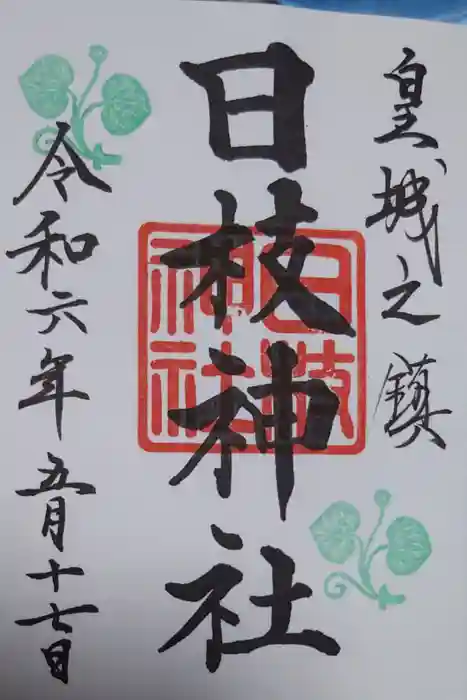 皇城之鎮
日枝神社
日枝
神社
令和六年五月十七日